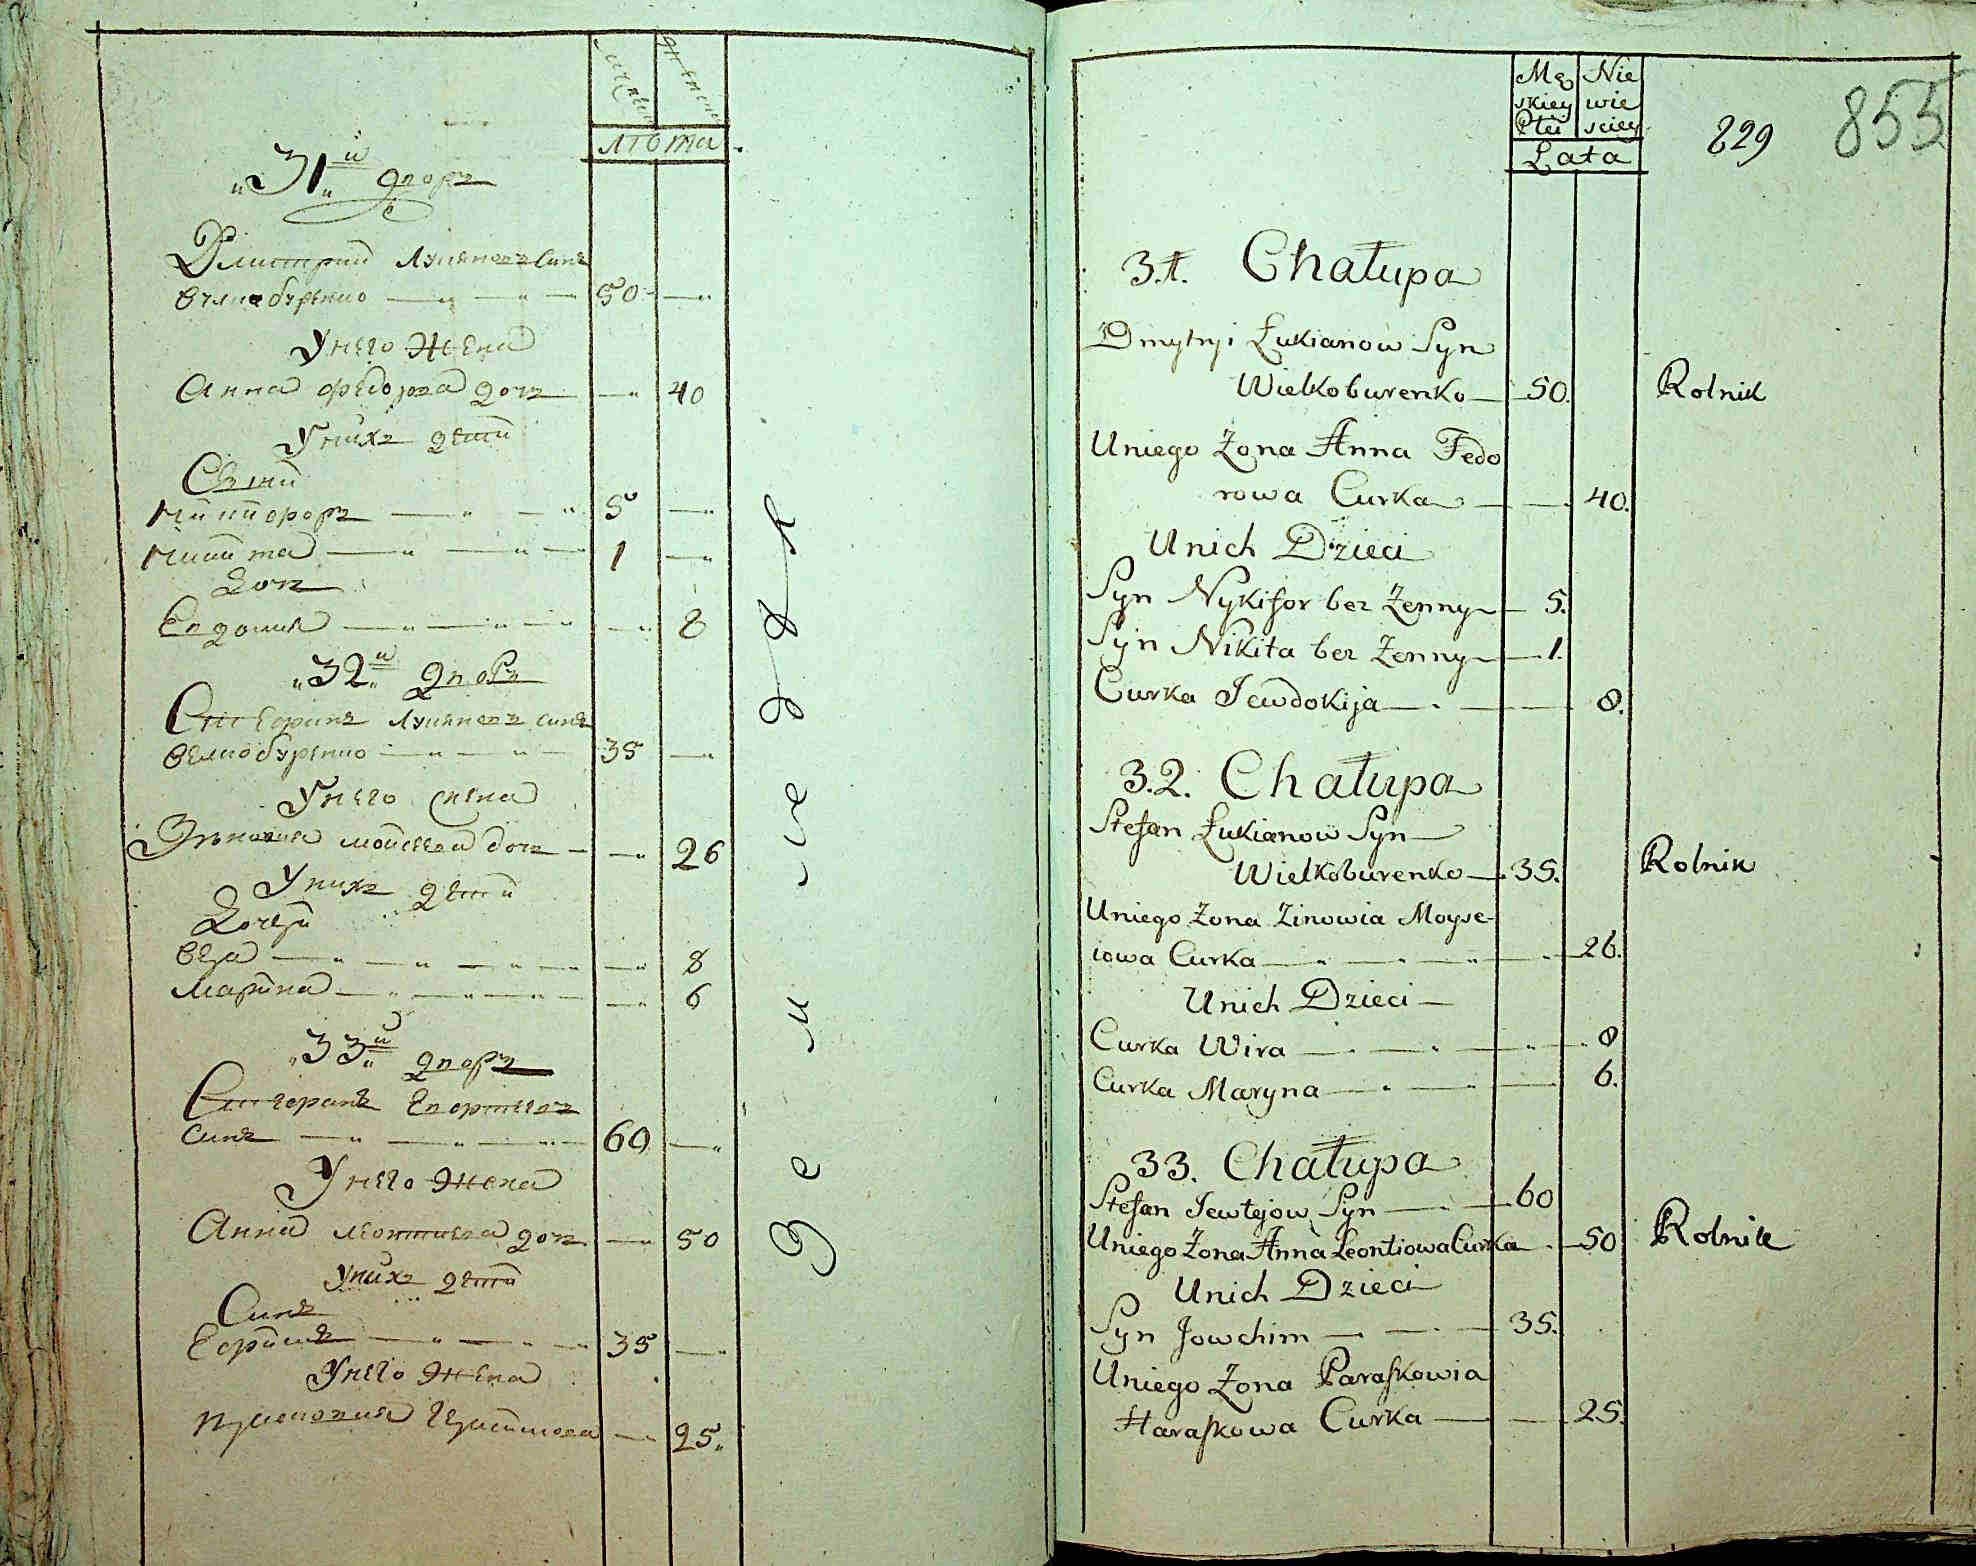 лѣта
31й дворъ
Дмитрий Лукяновъ синъ
Великобуренко 50
У него жена
Анна Федорова дочь 40
У нихъ дети
Сыни
Никифоръ 5
Никита 1
Дочь
Евдокия 8
32й дворъ
Стефанъ Лукяновъ синъ
Великобуренко 35
У него жена
Зѣновия Мойсеева дочь 26
У нихъ дети
Дочери
Вера 8
Марина 6
33й дворъ
Стефанъ Евтеевъ
синъ 60
У него жена
Анна Леонтиева дочь 50
У нихъ дети
Синъ
Ефимъ 35
У него жена
25
Mę Nie
skiey wie
Płci sciey
Lata
829 855
31. Chałupa
Dmytryi Łukianow Syn
Wielkoburenko 50. Rolnik
Uniego Żona Anna Fedo
rowa Curka 40.
Unich Dzieci
Syn Nykifor bez Żenny 5.
Syn Nikita bez Żenny 1.
Curka Jewdokija 8.
32. Chałupa
Stefan Łukianow Syn
Wielkoburenko 35. Rolnik
Uniego Żona Zinowia Moyse-
iowa Curka 26.
Unich Dzieci
Curka Wira 8
Curka Maryna 6.
33. Chałupa
Stefan Jewtejow Syn 60
Uniego Żona Anna Leontiowa Curka 50 Rolnik
Unich Dzieci
Syn Jowchim 35.
Uniego Żona Paraskowia
Haraskowa Curka 25.